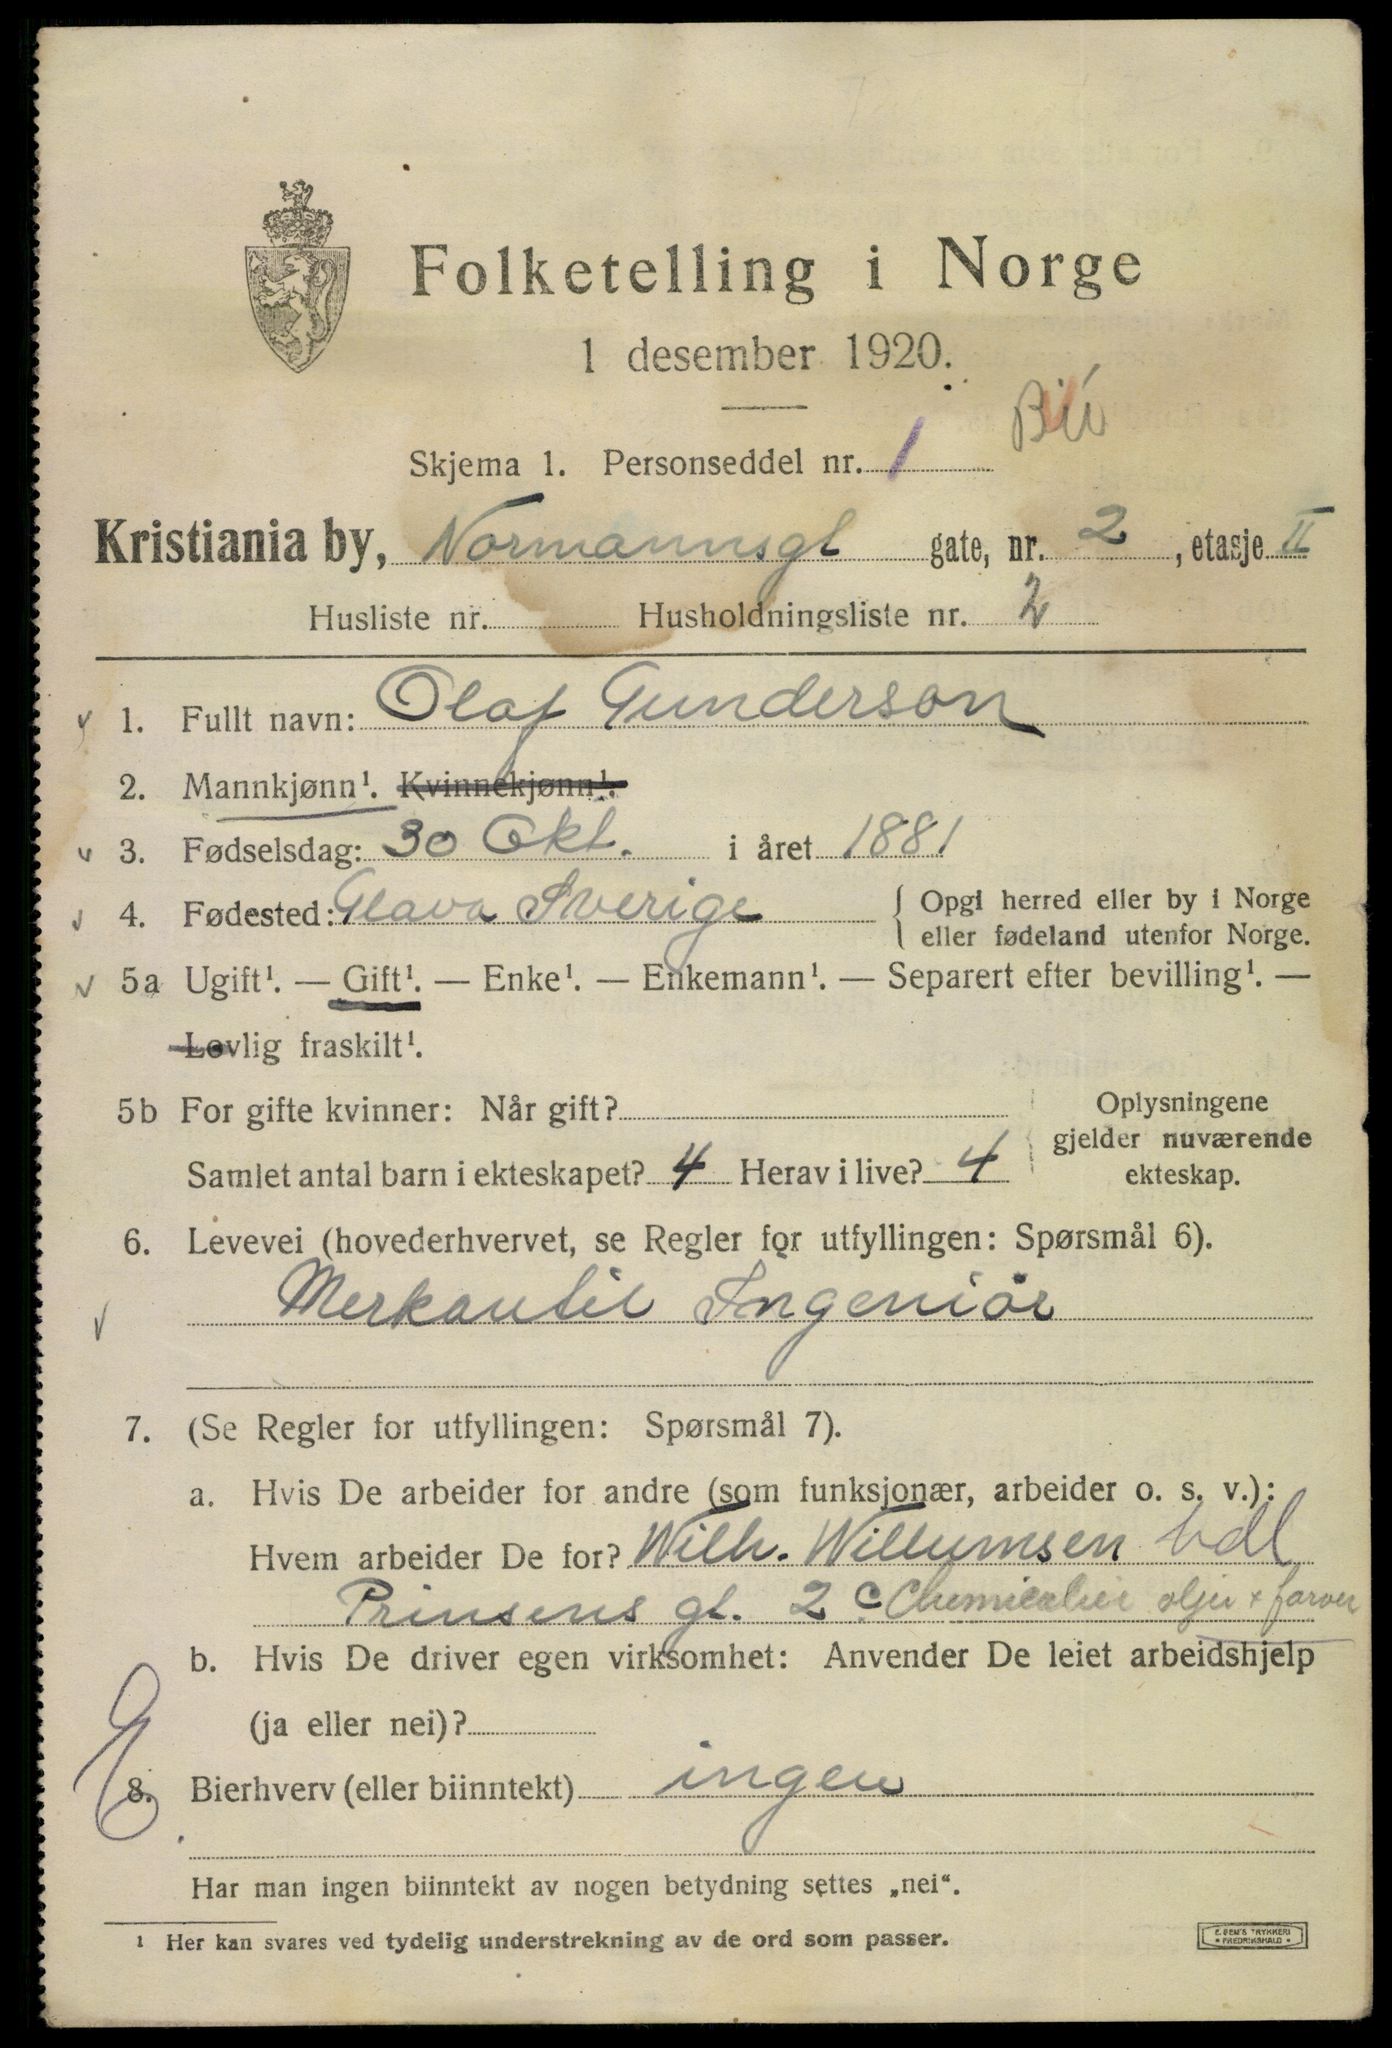 Folketelling i Norge
1 desember 1920.
Skjema 1. Personseddel nr. 1
Kristiania by, Normannsgt gate, nr. 2, etasje II
Husliste nr. Husholdningsliste nr. 2
1. Fullt navn: Olaf Gunderson
2. Mannkjønn¹. Kvinnekjønn¹.
3. Fødselsdag: 30 Okt. i året 1881
4. Fødested: Glava Sverige { Opgi herred eller by i Norge
eller fødeland utenfor Norge.
5a Ugift¹. — Gift¹. — Enke¹. — Enkemann¹. — Separert efter bevilling¹. —
Lovlig fraskilt¹.
5b For gifte kvinner: Når gift? Oplysningene
gjelder nuværende
Samlet antal barn i ekteskapet? 4 Herav i live? 4 ekteskap.
6. Levevei (hovederhvervet, se Regler for utfyllingen: Spørsmål 6).
Merkantil Ingeniör
7. (Se Regler for utfyllingen: Spørsmål 7).
a. Hvis De arbeider for andre (som funksjonær, arbeider o. s. v.):
Hvem arbeider De for? Wilh. Willumsen hdl
Prinsens gt. 2 c Chemicalier oljer + farver
b. Hvis De driver egen virksomhet: Anvender De leiet arbeidshjelp
(ja eller nei)?
8. Bierhverv (eller biinntekt) ingen
Har man ingen biinntekt av nogen betydning settes „nei“.
¹ Her kan svares ved tydelig understrekning av de ord som passer.
E. SEM'S TRYKKERI
* FREDRIKSHALD *